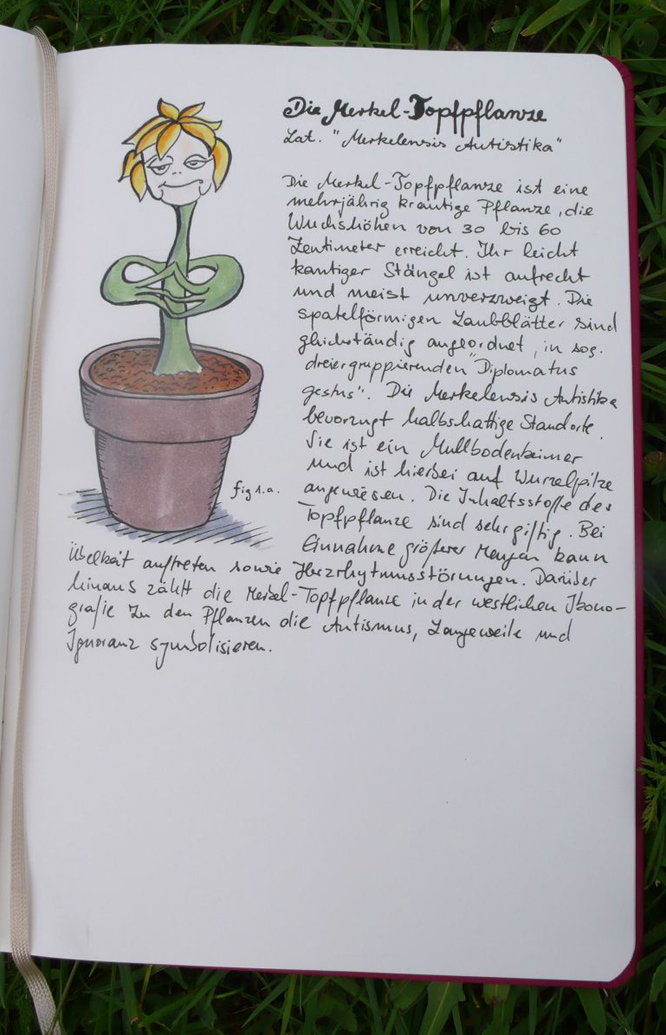 Die Merkel-Topfpflanze
Lat. "Merkelensis Autistika"
Die Merkel-Topfpflanze ist eine
mehrjährig krautige Pflanze, die
Wuchshöhen von 30 bis 60
Zentimeter erreicht. Ihr leicht
kantiger Stängel ist aufrecht
und meist unverzweigt. Die
spatelförmigen Laubblätter sind
gleichständig angeordnet, in sog.
dreiergruppierenden "Diplomatus
gestus". Die Merkelensis Autistika
bevorzugt halbschattige Standorte.
Sie ist ein Mullbodenkeimer
und ist hierbei auf Wurzelpilze
angewiesen. Die Inhaltsstoffe der
Topfpflanze sind sehr giftig. Bei
Einnahme größerer Mengen kann
Übelkeit auftreten sowie Herzrhytmusstörungen. Darüber
hinaus zählt die Merkel-Topfpflanze in der westlichen Ikono-
grafie zu den Pflanzen die Autismus, Langeweile und
Ignoranz symbolisieren.
fig 1.a.